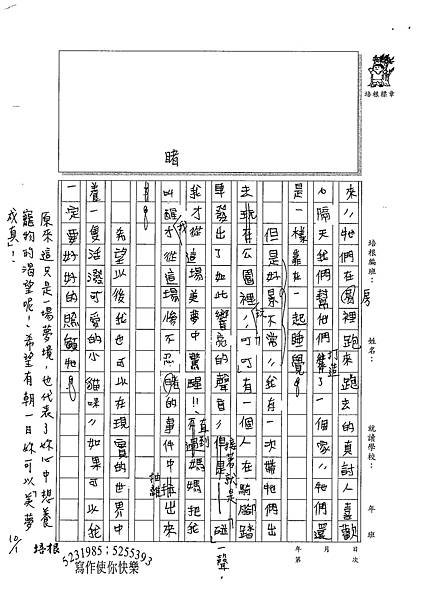 培根標章
睹
培根編班：
姓名：
就讀學校：
年 班
日 次
年 第
房
來，牠們在房間裡跑來跑去的真討人喜歡
打造
隔天我們幫他們了一個家，牠們還
是一樣靠在一起睡覺。
但是好景不常，我有一次帶牠們出
去玩
在公園裡，叮叮有一個人在騎腳踏
接著就是
車發出了如此響亮的聲音，「碰」一聲，
直到
我才從這場美夢中驚醒！！媽媽把我
叫醒我才從這場慘不忍睹的事件中抽離出來
。
希望以後我也可以在現實的世界中
養一隻活潑可愛的小貓咪，如果可以我
一定要好好的照顧牠。
原來這只是一場夢境，也代表了妳心中想養
寵物的渴望呢！希望有朝一日妳可以「美夢
成真」！
10/1
培根
5231985；5255393
寫作使你快樂